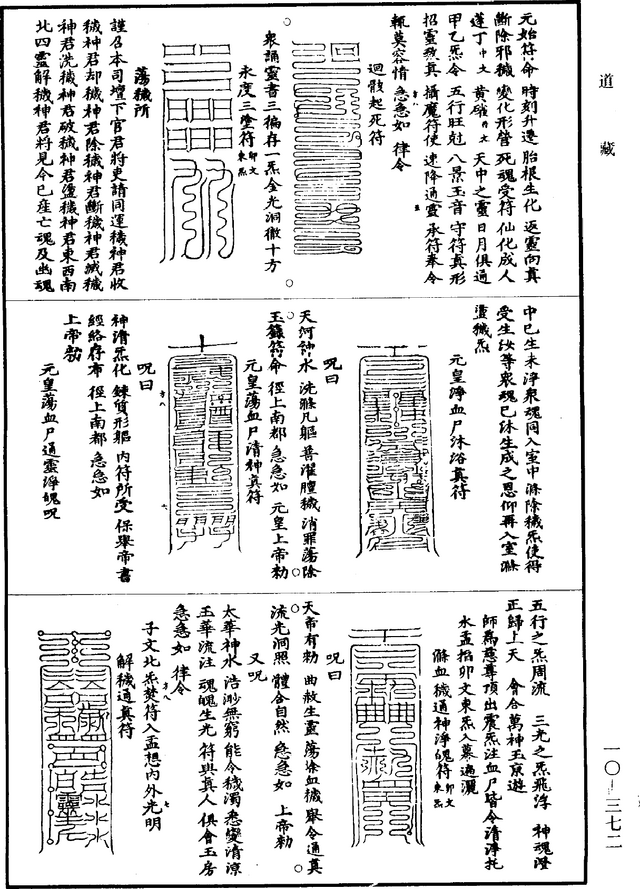 道藏
元始符命 時刻升遷 胎根生化 返靈向真
斷除邪穢 變化形質 死魂受符 仙化成人
蓬丁 黃 天中之靈 日月俱通
甲乙炁令 五行旺尅 八景玉音 守符真形
招靈致真 攝魔符使 速降通靈 承符奉令
輒莫容情 急急如 律令
迴骸起死符
衆誦靈書三徧存一炁金光洞徹十方
永度三塗符 卯文東炁
蕩穢所
謹召本司壇下官君將吏請同運穢神君收
穢神君却穢神君除穢神君斷穢神君滅穢
神君洗穢神君破穢神君盪穢神君東西南
北四靈解穢神君將見今已産亡魂及幽魂
中已生未淨衆魂同入室中滌除穢炁使得
受生汝等衆魂已沐生成之恩仰再入室滌
盪穢炁
元皇淨血尸沐浴真符
呪曰
天河神水 洗滌凡軀 普濯膻穢 消罪蕩除
玉籙符命 徑上南都 急急如 元皇上帝勑
元皇蕩血尸清神真符
呪曰
神清炁化 鍊質形軀 內符所受 保舉帝書
經絡存布 徑上南都 急急如
上帝勑
元皇蕩血尸通靈淨魄呪
五行之炁周流 三光之炁飛浮 神魂澄
正歸上天 會合萬神玉京遊
師為慈尊頂出震炁注血尸皆令清淨托
水盂掐卯文東炁入幕遍灑
滌血穢通神淨魄符 卯文東炁
呪曰
天帝有勑 曲赦生靈 蕩滌血穢 舉令通真
流光洞照 體合自然 急急如 上帝勑
又呪
太華神水 浩渺無窮 能令穢濁 悉變清涼
玉華流注 魂魄生光 符與真人 俱會玉房
急急如 律令
子文北炁焚符入盂想內外光明
解穢通真符
一〇—三七二